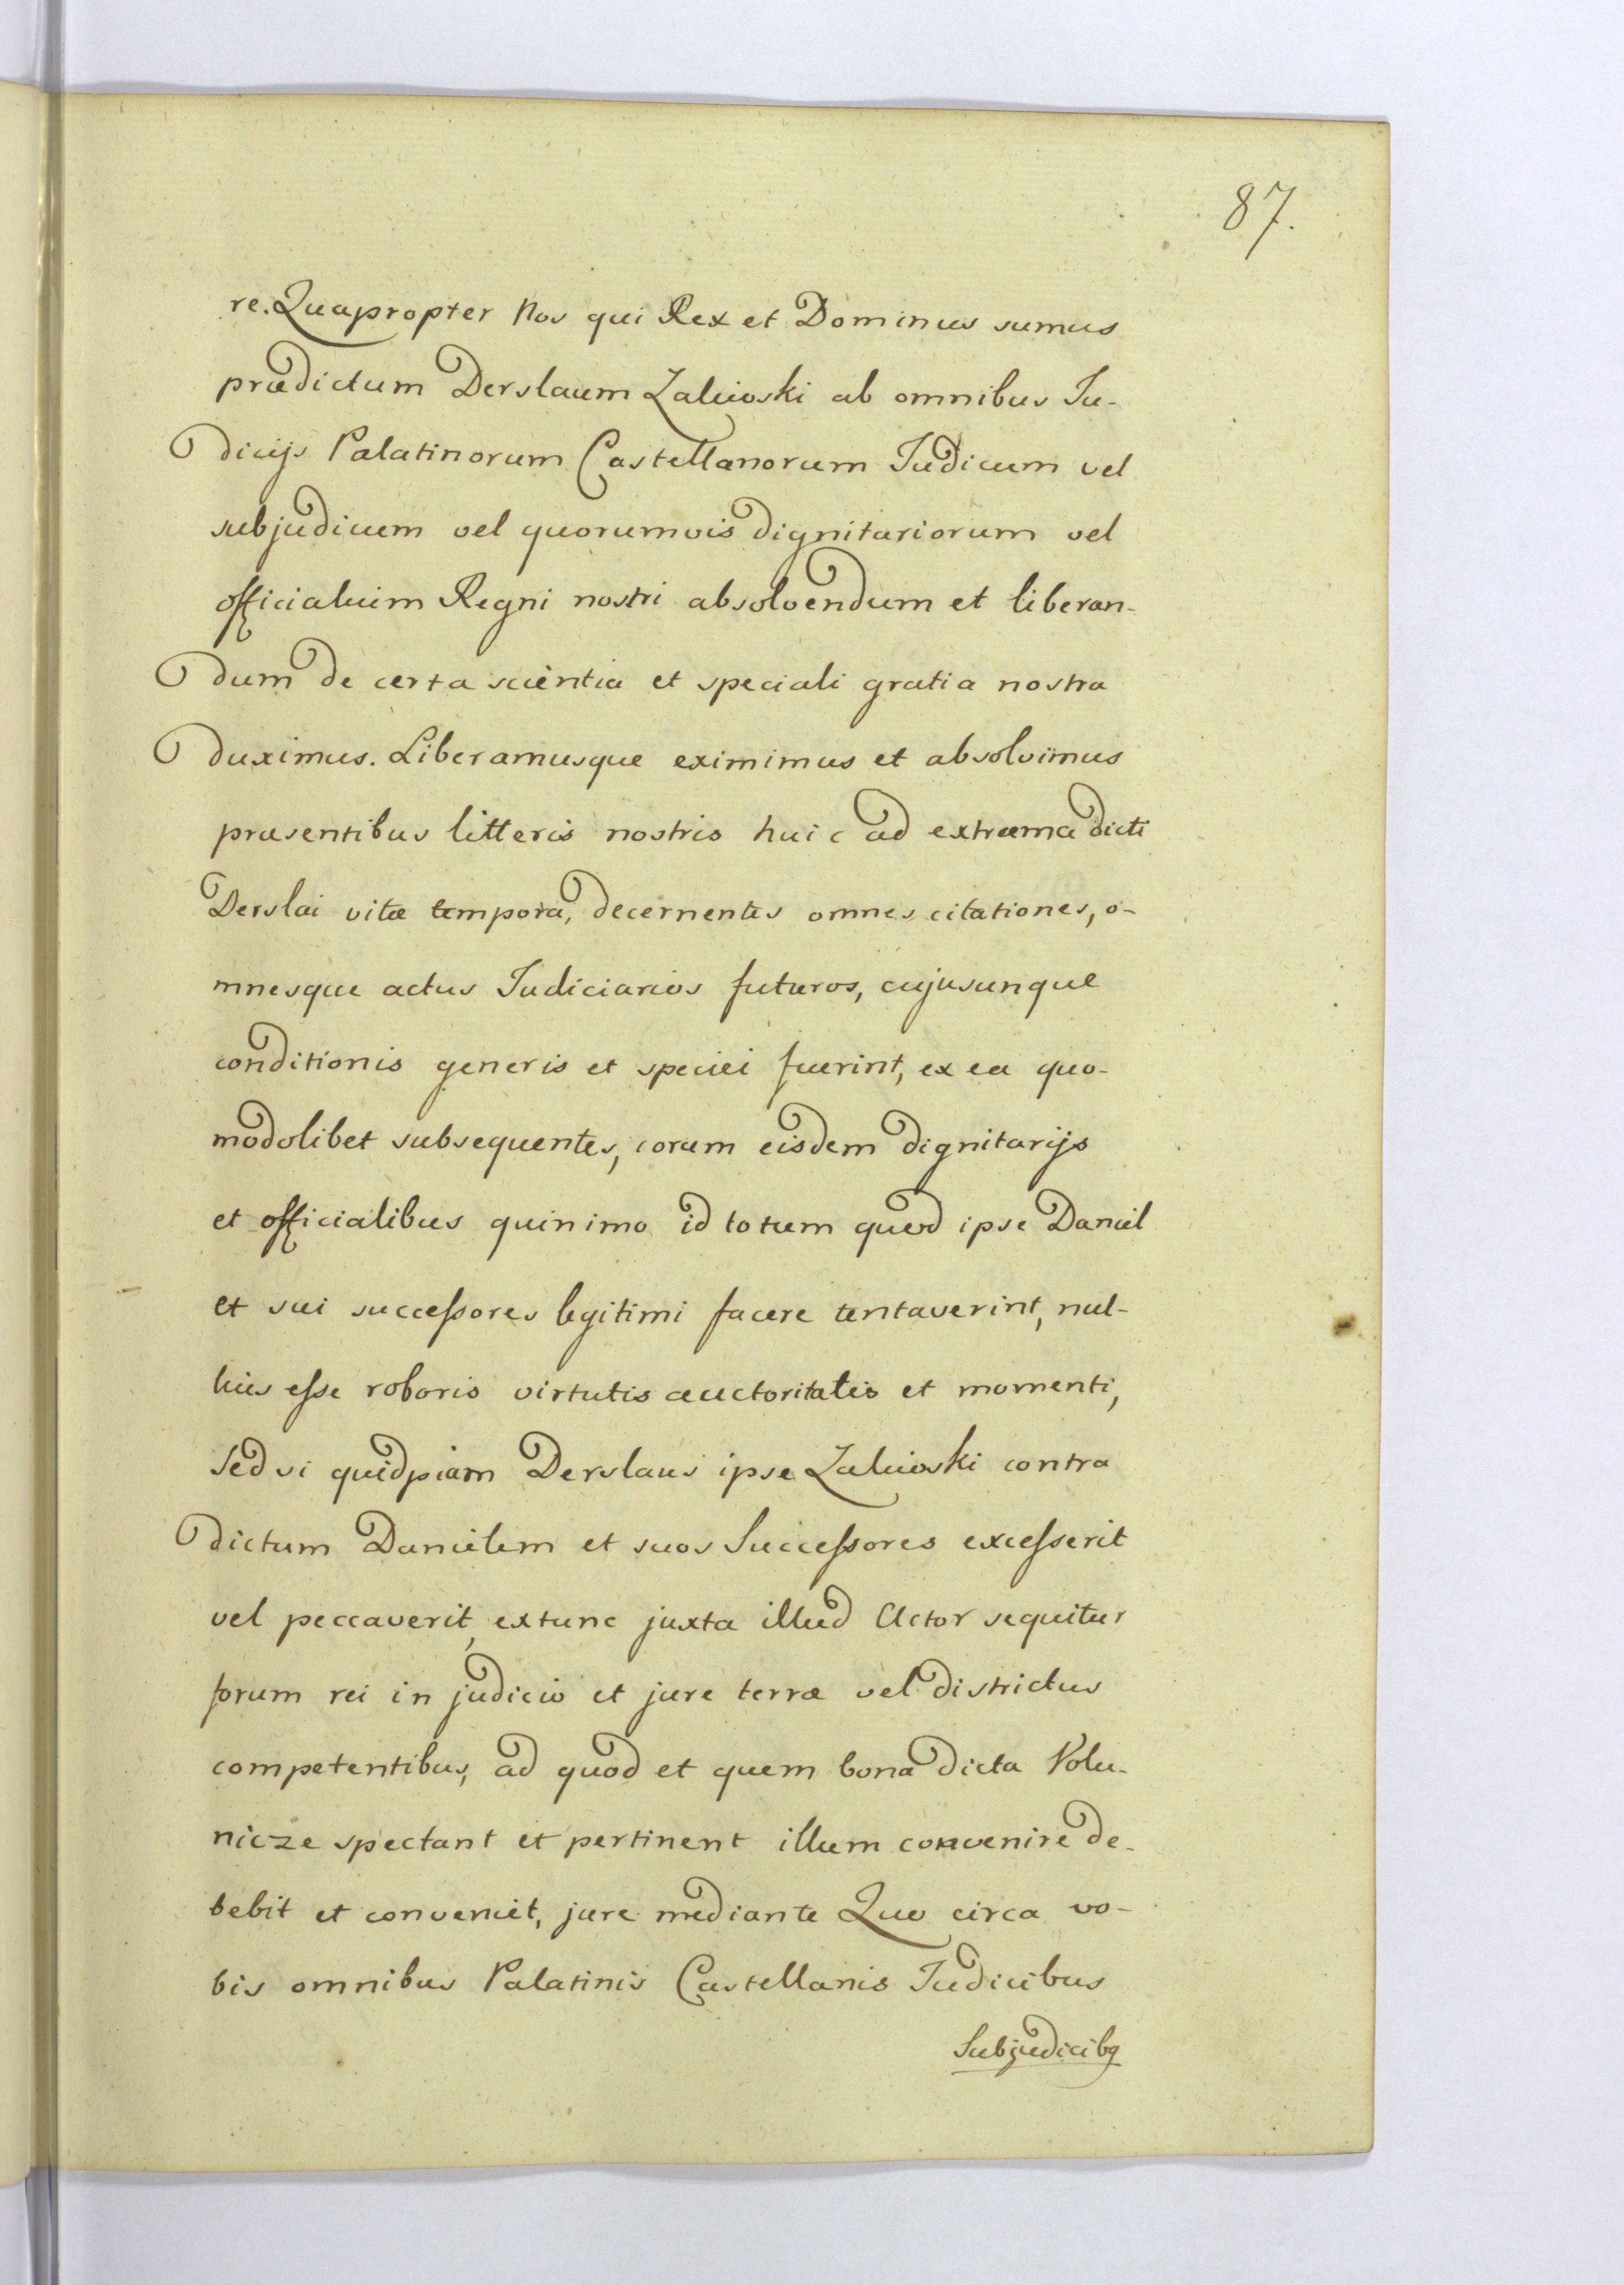 87.
re. Quapropter Nos qui Rex et Dominus sumus
prædictum Derslaum Zaliwski ab omnibus Ju-
dicijs Palatinorum Castellanorum Judicum vel
subjudicum vel quorumvis dignitariorum vel
officialium Regni nostri absolvendum et liberan-
dum de certa scientia et speciali gratia nostra
duximus. Liberamusque eximimus et absolvimus
præsentibus litteris nostris huic ad extræma dicti
Derslai vitæ tempora, decernentes omnes citationes, o-
mnesque actus Judiciarios futuros, cujusunque
conditionis generis et speciei fuerint, ex ea quo-
modolibet subsequentes, coram eisdem dignitarijs
et officialibus quinimo id totum quod ipse Daniel
et sui successores legitimi facere tentaverint, nul-
lius esse roboris virtutis auctoritatis et momenti,
Sed si quidpiam Derslaus ipse Zaliwski contra
dictum Danielem et suos Successores excesserit
vel peccaverit, extunc juxta illud Actor sequitur
forum rei in judicio et jure terræ vel districtus
competentibus, ad quod et quem bona dicta Volu-
nicze spectant et pertinent illum convenire de-
bebit et conveniet, jure mediante Quo circa vo-
bis omnibus Palatinis Castellanis Judicibus
Subjudicibq